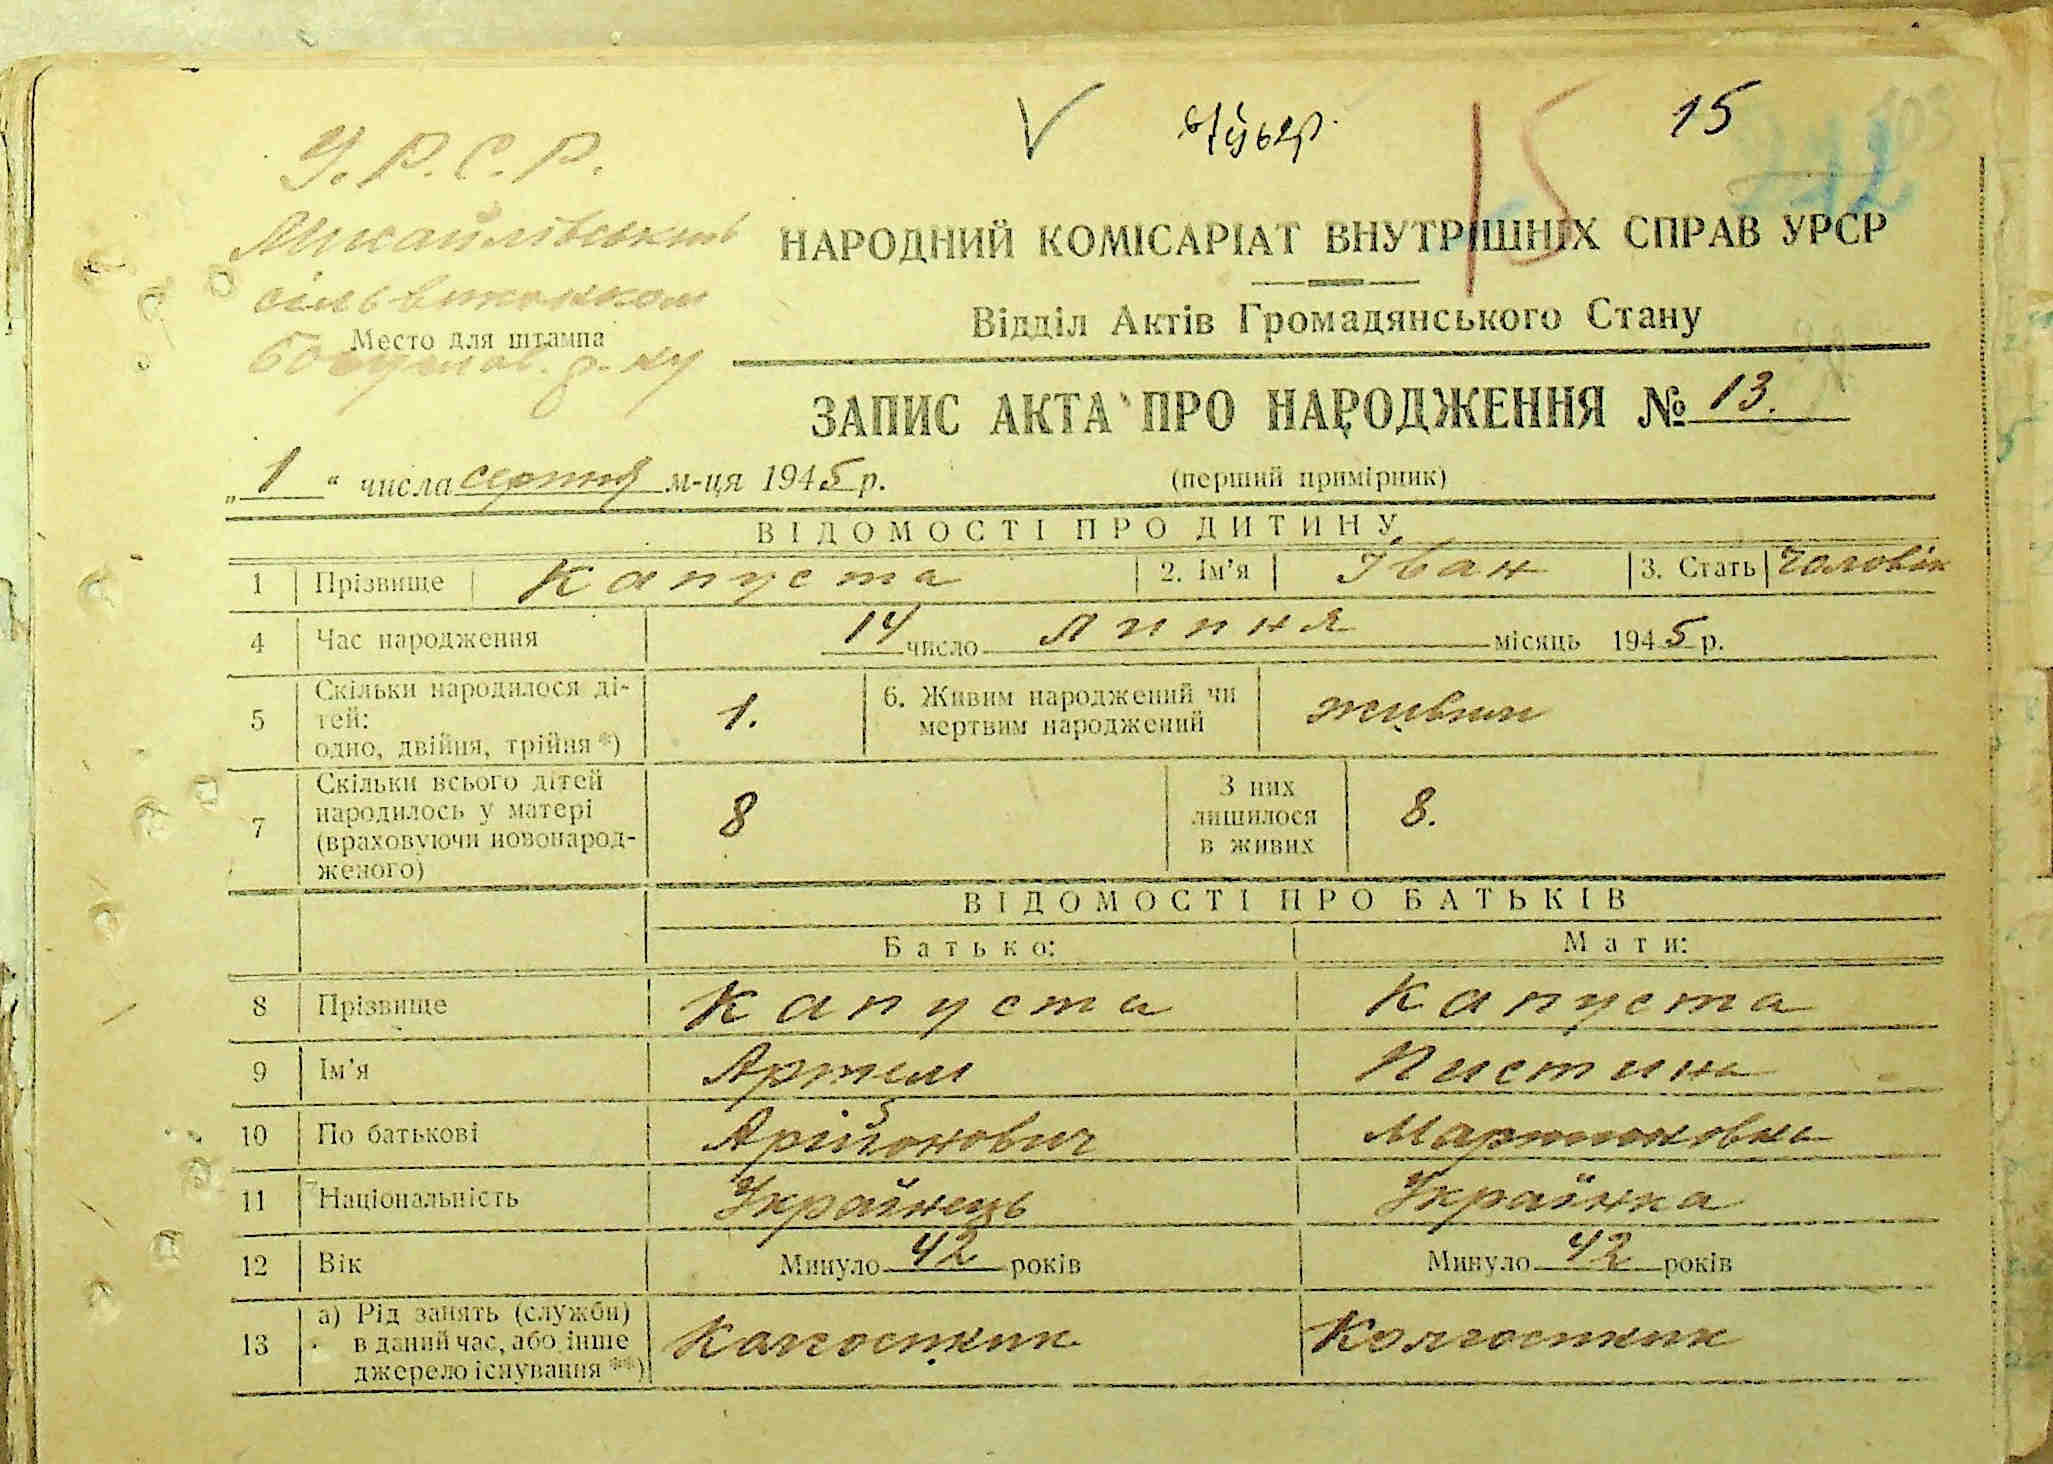 15
15
У.Р.С.Р.
Михайлівський
сільвиконком
Место для штампа
НАРОДНИЙ КОМІСАРІАТ ВНУТРІШНІХ СПРАВ УРСР
Відділ Актів Громадянського Стану
ЗАПИС АКТА ПРО НАРОДЖЕННЯ № 13.
„1“ числа серпня м-ця 1945 р. (перший примірник)
ВІДОМОСТІ ПРО ДИТИНУ
1 Прізвище Капуста 2. Ім'я Іван 3. Стать Чоловік
4 Час народження 14 число липня місяць 1945 р.
5 Скільки народилося ді-
тей:
одно, двійня, трійня*) 1. 6. Живим народжений чи
мертвим народжений живим
7 Скільки всього дітей
народилось у матері
(враховуючи новонарод-
женого) 8 З них
лишилося
в живих 8.
ВІДОМОСТІ ПРО БАТЬКІВ
Батько: Мати:
8 Прізвище Капуста Капуста
9 Ім'я Артем Пистина
10 По батькові Мартиновна
11 Національність Українець Українка
12 Вік Минуло 42 років Минуло 42 років
13 а) Рід занять (служби)
в даний час, або інше
джерело існування **) Колгоспник Колгоспник